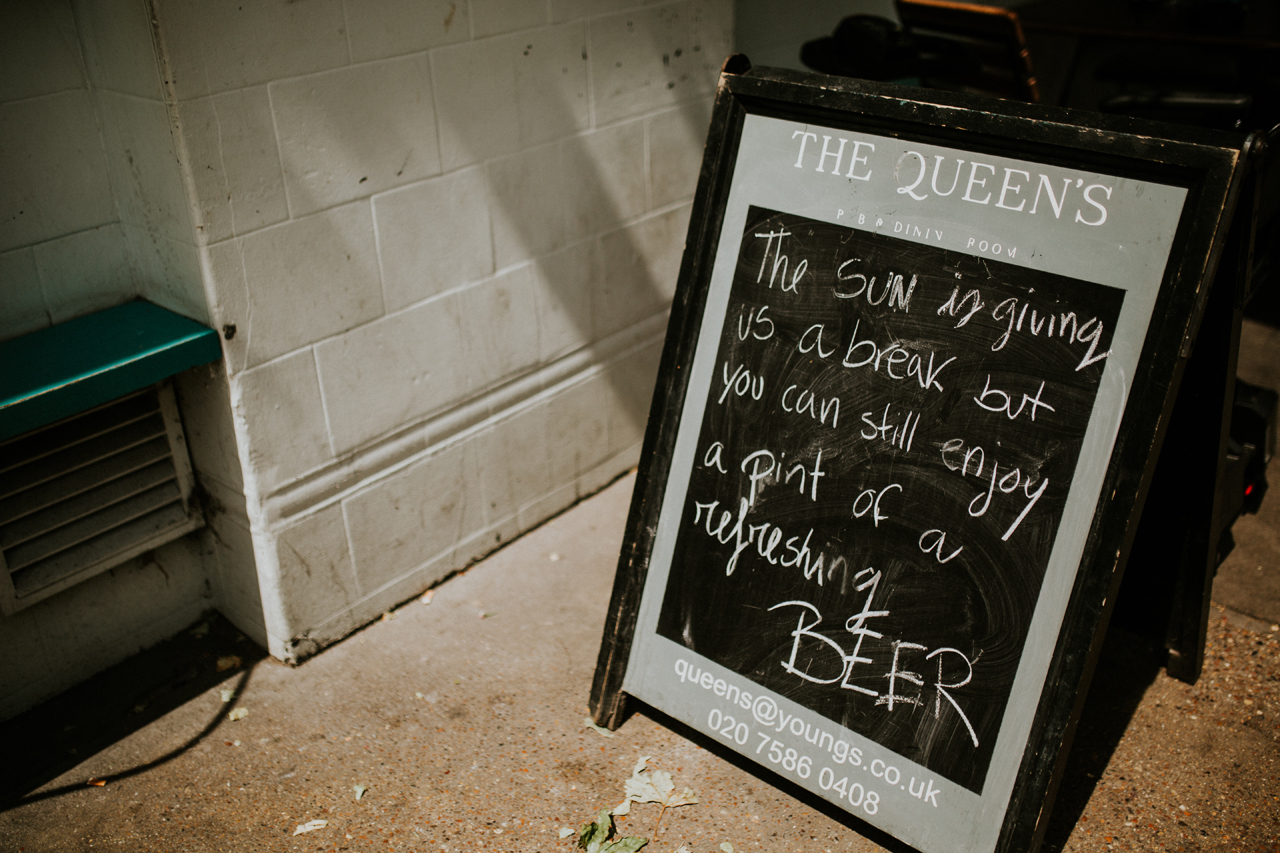 THE QUEEN'S
P B & DININ ROOM
The SUN is giving
us a break but
you can still enjoy
a pint of a
refreshing
BEER
queens@youngs.co.uk
020 7586 0408